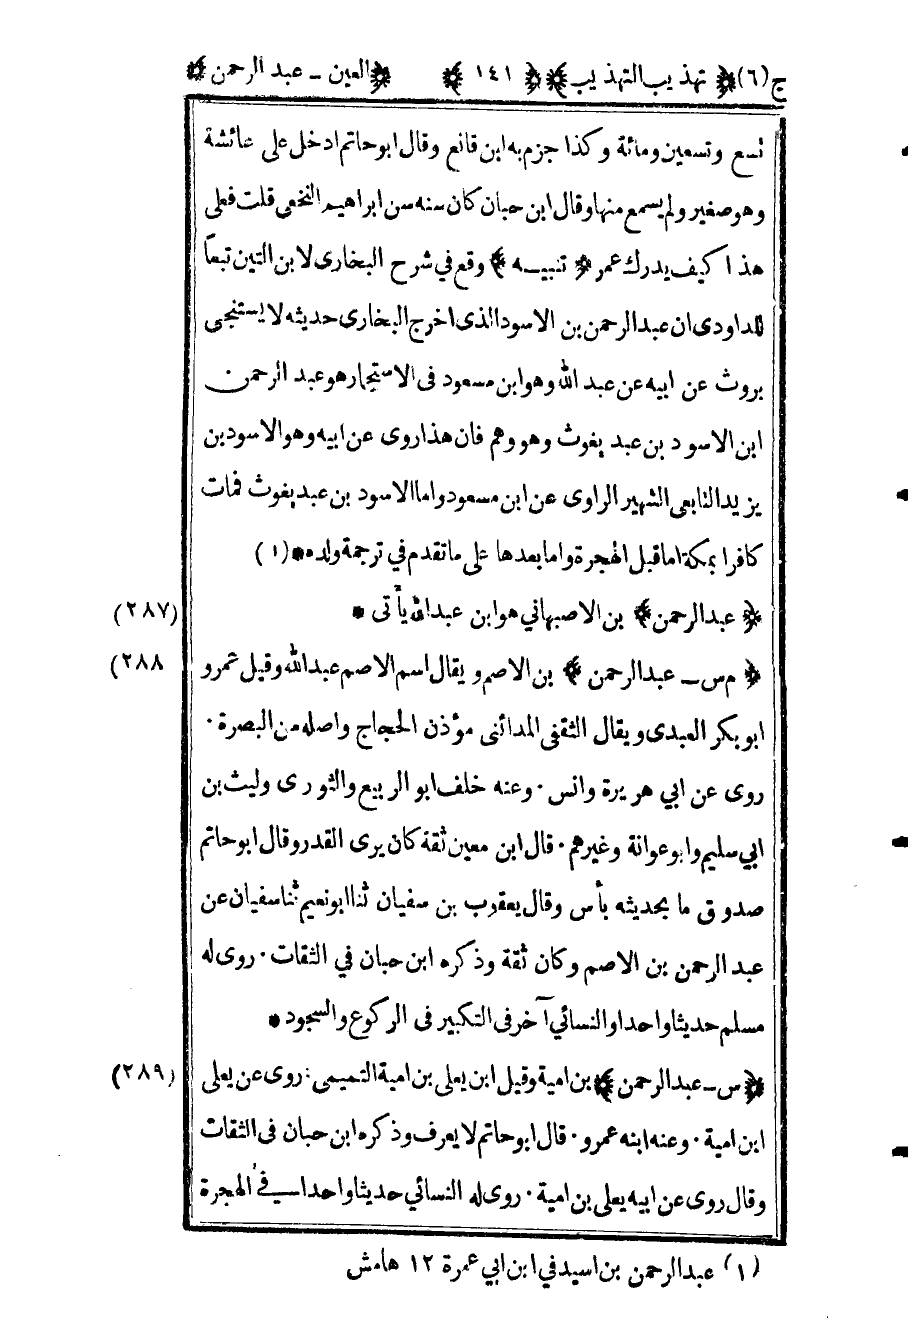 ج(٦) ﴿ تهذيب التهذيب ﴾ ﴿ ١٤١ ﴾ ﴿ العين - عبد الرحمن ﴾
تسع وتسعين ومائة وكذا جزم به ابن قانع وقال ابو حاتم ادخل على عائشة
وهو صغير ولم يسمع منها وقال ابن حبان كان سنه سن ابراهيم النخعى قلت فعلى
هذا كيف يدرك عمر ﴿ تنبيه ﴾ وقع في شرح البخارى لابن التين تبعاً
للداودى ان عبد الرحمن بن الاسود الذى اخرج البخارى حديثه لا يستنجى
بروث عن ابيه عن عبد الله وهو ابن مسعود فى الاستجمار هو عبد الرحمن
ابن الاسود بن عبد يغوث وهو وهم فان هذا روى عن ابيه وهو الاسود بن
يزيد التابعى الشهير الراوى عن ابن مسعود واما الاسود بن عبد يغوث فمات
كافرا بمكة اما قبل الهجرة واما بعدها على ما تقدم في ترجمة ولده * (١)
﴿ عبد الرحمن ﴾ بن الاصبهاني هو ابن عبد الله يأتى * (٢٨٧)
﴿ م س - عبد الرحمن ﴾ بن الاصم ويقال اسم الاصم عبد الله وقيل عمرو (٢٨٨
ابو بكر العبدى ويقال الثقفى المدائنى مؤذن الحجاج واصله من البصرة ٠
روى عن ابي هريرة وانس ٠ وعنه خلف ابو الربيع والثورى وليث بن
ابي سليم وابو عوانة وغيرهم ٠ قال ابن معين ثقة كان يرى القدر وقال ابو حاتم
صدوق ما بحديثه بأس وقال يعقوب بن سفيان ثنا ابو نعيم ثنا سفيان عن
عبد الرحمن بن الاصم وكان ثقة وذكره ابن حبان في الثقات ٠ روى له
مسلم حديثا واحدا والنسائي آخر فى التكبير فى الركوع والسجود *
﴿ س - عبد الرحمن ﴾ بن امية وقيل ابن يعلى بن امية التميمى ٠ روى عن يعلى (٢٨٩)
ابن امية ٠ وعنه ابنه عمرو ٠ قال ابو حاتم لا يعرف وذكره ابن حبان فى الثقات
وقال روى عن ابيه يعلى بن امية ٠ روى له النسائي حديثا واحدا في الهجرة
(١) عبد الرحمن بن اسيد في ابن ابي عمرة ١٢ هامش